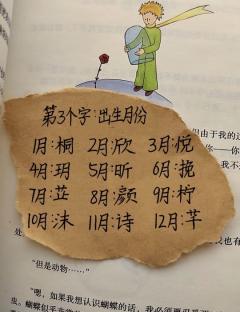 第3个字:出生月份
1月:桐 2月:欣 3月:悦
4月:玥 5月:昕 6月:挽
7月:芷 8月:颜 9月:柠
10月:沫 11月:诗 12月:芊
但由于我的
你——你
我不
处
“但是动物……”
“嗯，如果我想认识蝴蝶的话，我必须要